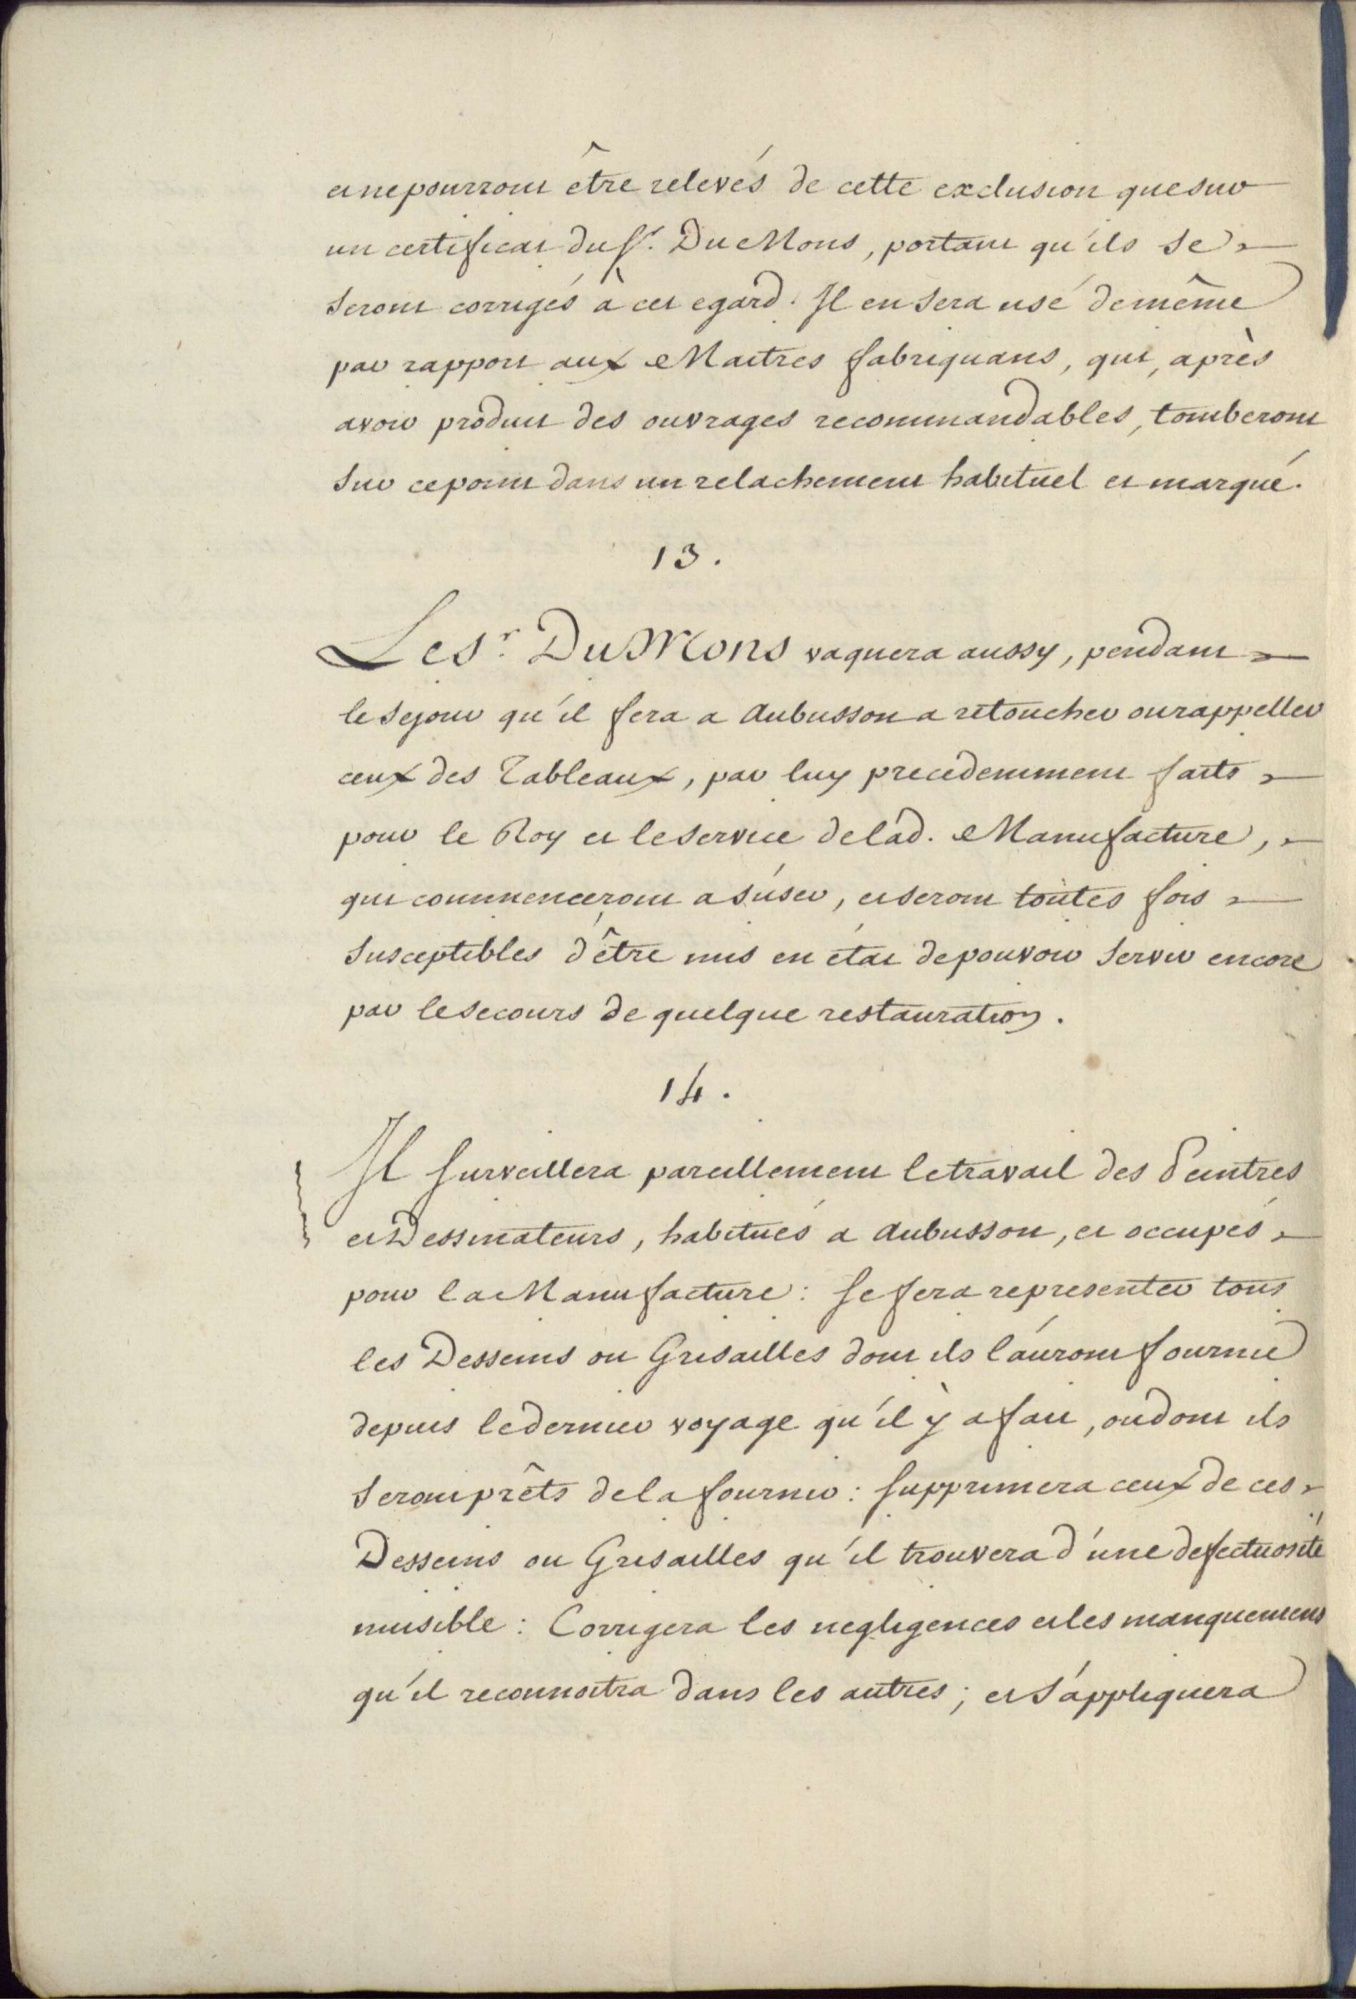 et ne pourront être relevés de cette exclusion que sur
un certificat du Sr. Du Mons, portant qu'ils se
seront corrigés à cet egard. Il en sera usé de même
par rapport aux Maitres fabriquans, qui, après
avoir produit des ouvrages recommandables, tomberont
sur ce point dans un relachement habituel et marqué.
13.
Le Sr. Du Mons vaquera aussy, pendant
le sejour qu'il fera a Aubusson a retoucher ou rappeller
ceux des Tableaux, par luy precedemment faits
pour le Roy et le service de lad. Manufacture,
qui commenceront a s'user, et seront toutes fois
susceptibles d'être mis en état de pouvoir servir encore
par le secours de quelque restauration.
14.
Il surveillera pareillement le travail des Peintres
et Dessinateurs, habitués a Aubusson, et occupés
pour la Manufacture: se fera representer tous
les Desseins ou Grisailles dont ils l'auront fournie
depuis le dernier voyage qu'il ÿ a fait, ou dont ils
seront prêts de la fournir: supprimera ceux de ces
Desseins ou Grisailles qu'il trouvera d'une defectuosité
nuisible: Corrigera les negligences et les manquemens
qu'il reconnoitra dans les autres; et s'appliquera